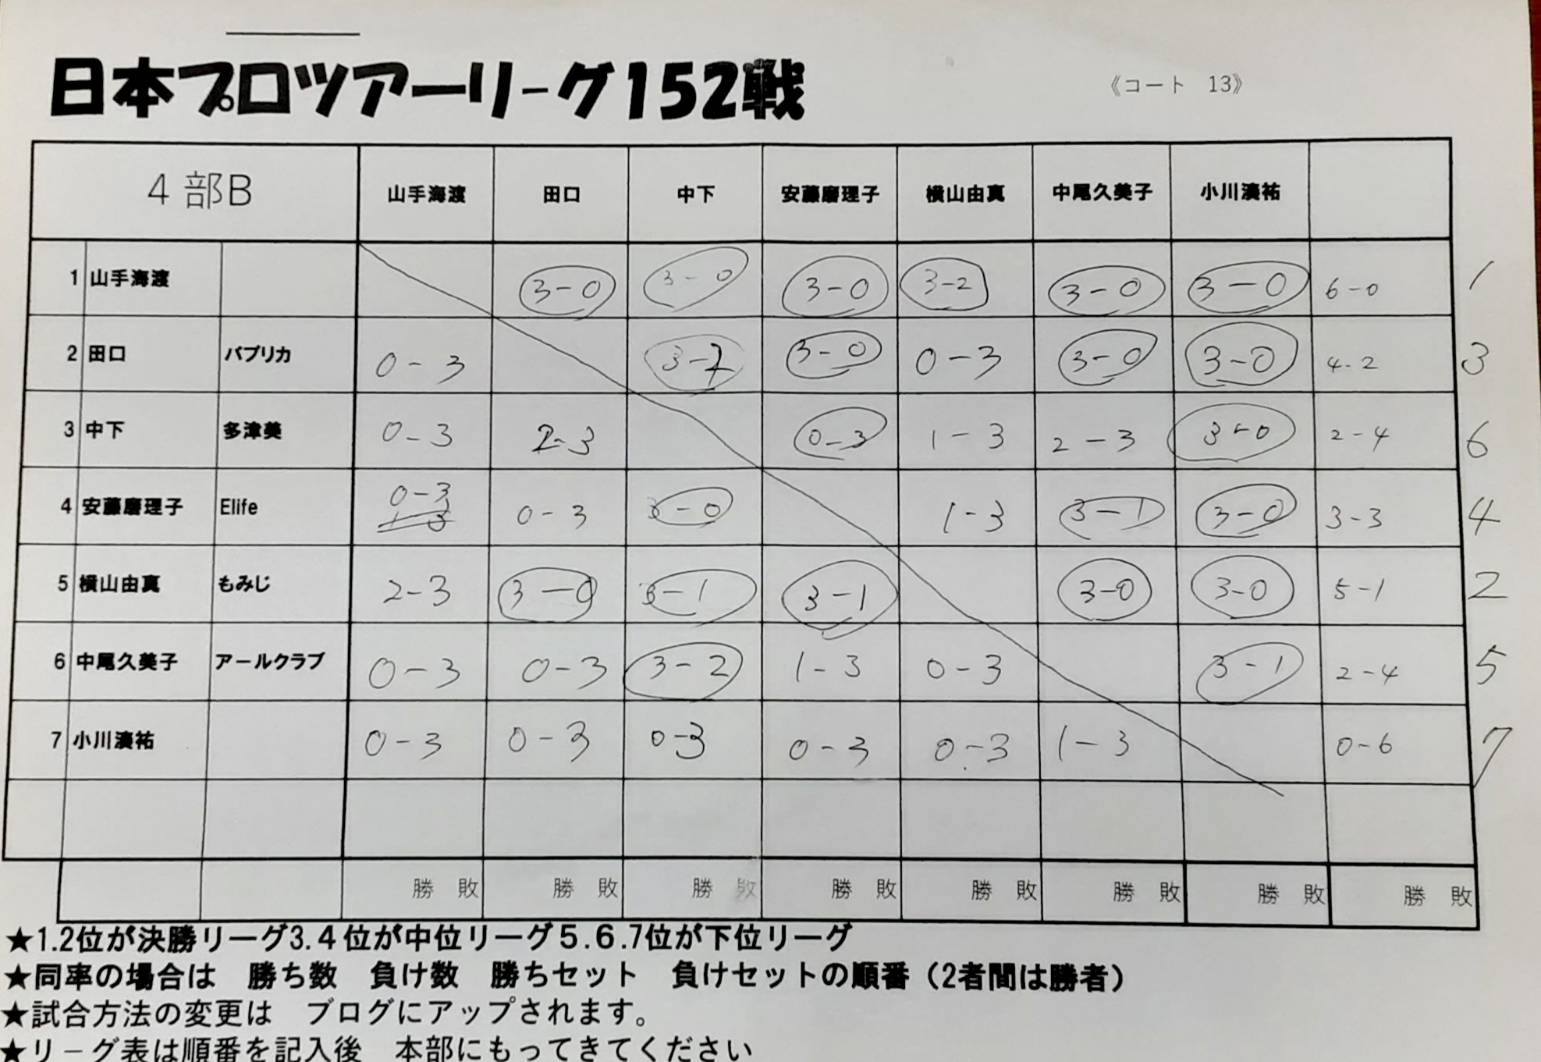 日本プロツアーリーグ152戦
《コート 13》
4部B 山手海渡 田口 中下 安藤磨理子 横山由真 中尾久美子 小川湊祐
1 山手海渡 3-0 3-0 3-0 3-2 3-0 3-0 6-0 1
2 田口 パプリカ 0-3 3-2 3-0 0-3 3-0 3-0 4-2 3
3 中下 多津美 0-3 2-3 0-3 1-3 2-3 3-0 2-4 6
4 安藤磨理子 Elife 0-3 0-3 3-0 1-3 3-1 3-0 3-3 4
5 横山由真 もみじ 2-3 3-0 3-1 3-1 3-0 3-0 5-1 2
6 中尾久美子 アールクラブ 0-3 0-3 3-2 1-3 0-3 3-1 2-4 5
7 小川湊祐 0-3 0-3 0-3 0-3 0-3 1-3 0-6 7
勝 敗 勝 敗 勝 敗 勝 敗 勝 敗 勝 敗 勝 敗 勝 敗
★1.2位が決勝リーグ3.4位が中位リーグ5.6.7位が下位リーグ
★同率の場合は 勝ち数 負け数 勝ちセット 負けセットの順番（2者間は勝者）
★試合方法の変更は ブログにアップされます。
★リーグ表は順番を記入後 本部にもってきてください